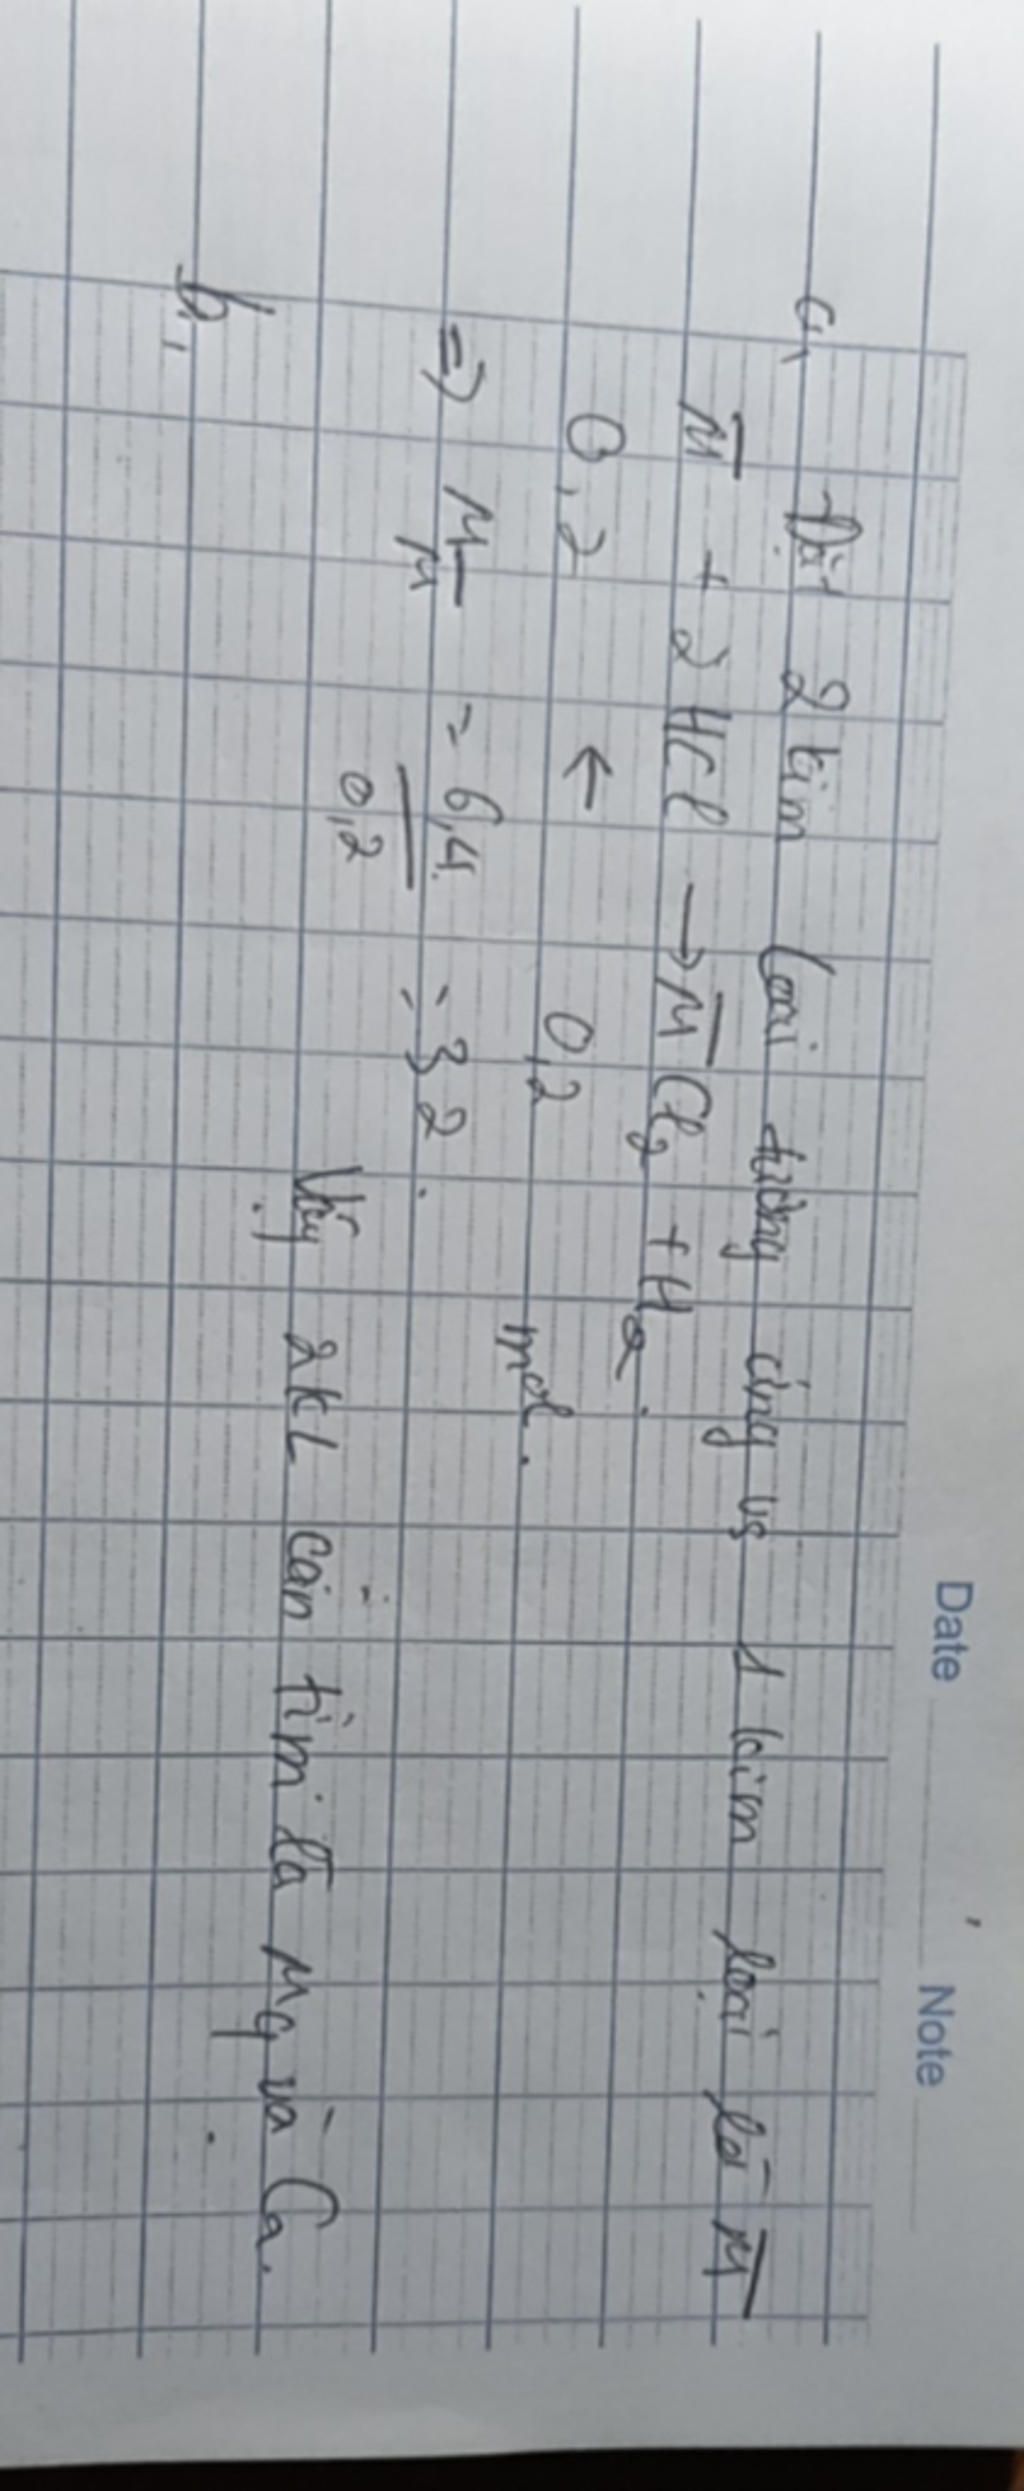 Date Note
a, Đặt 2 kim loại tương ứng vs 1 kim loại là M̅
M̅ + 2HCl → M̅Cl₂ + H₂.
0,2 ← 0,2 mol.
=> M_M̅ = 6,4/0,2 = 32.
Vậy 2KL cần tìm là Mg và Ca.
b,